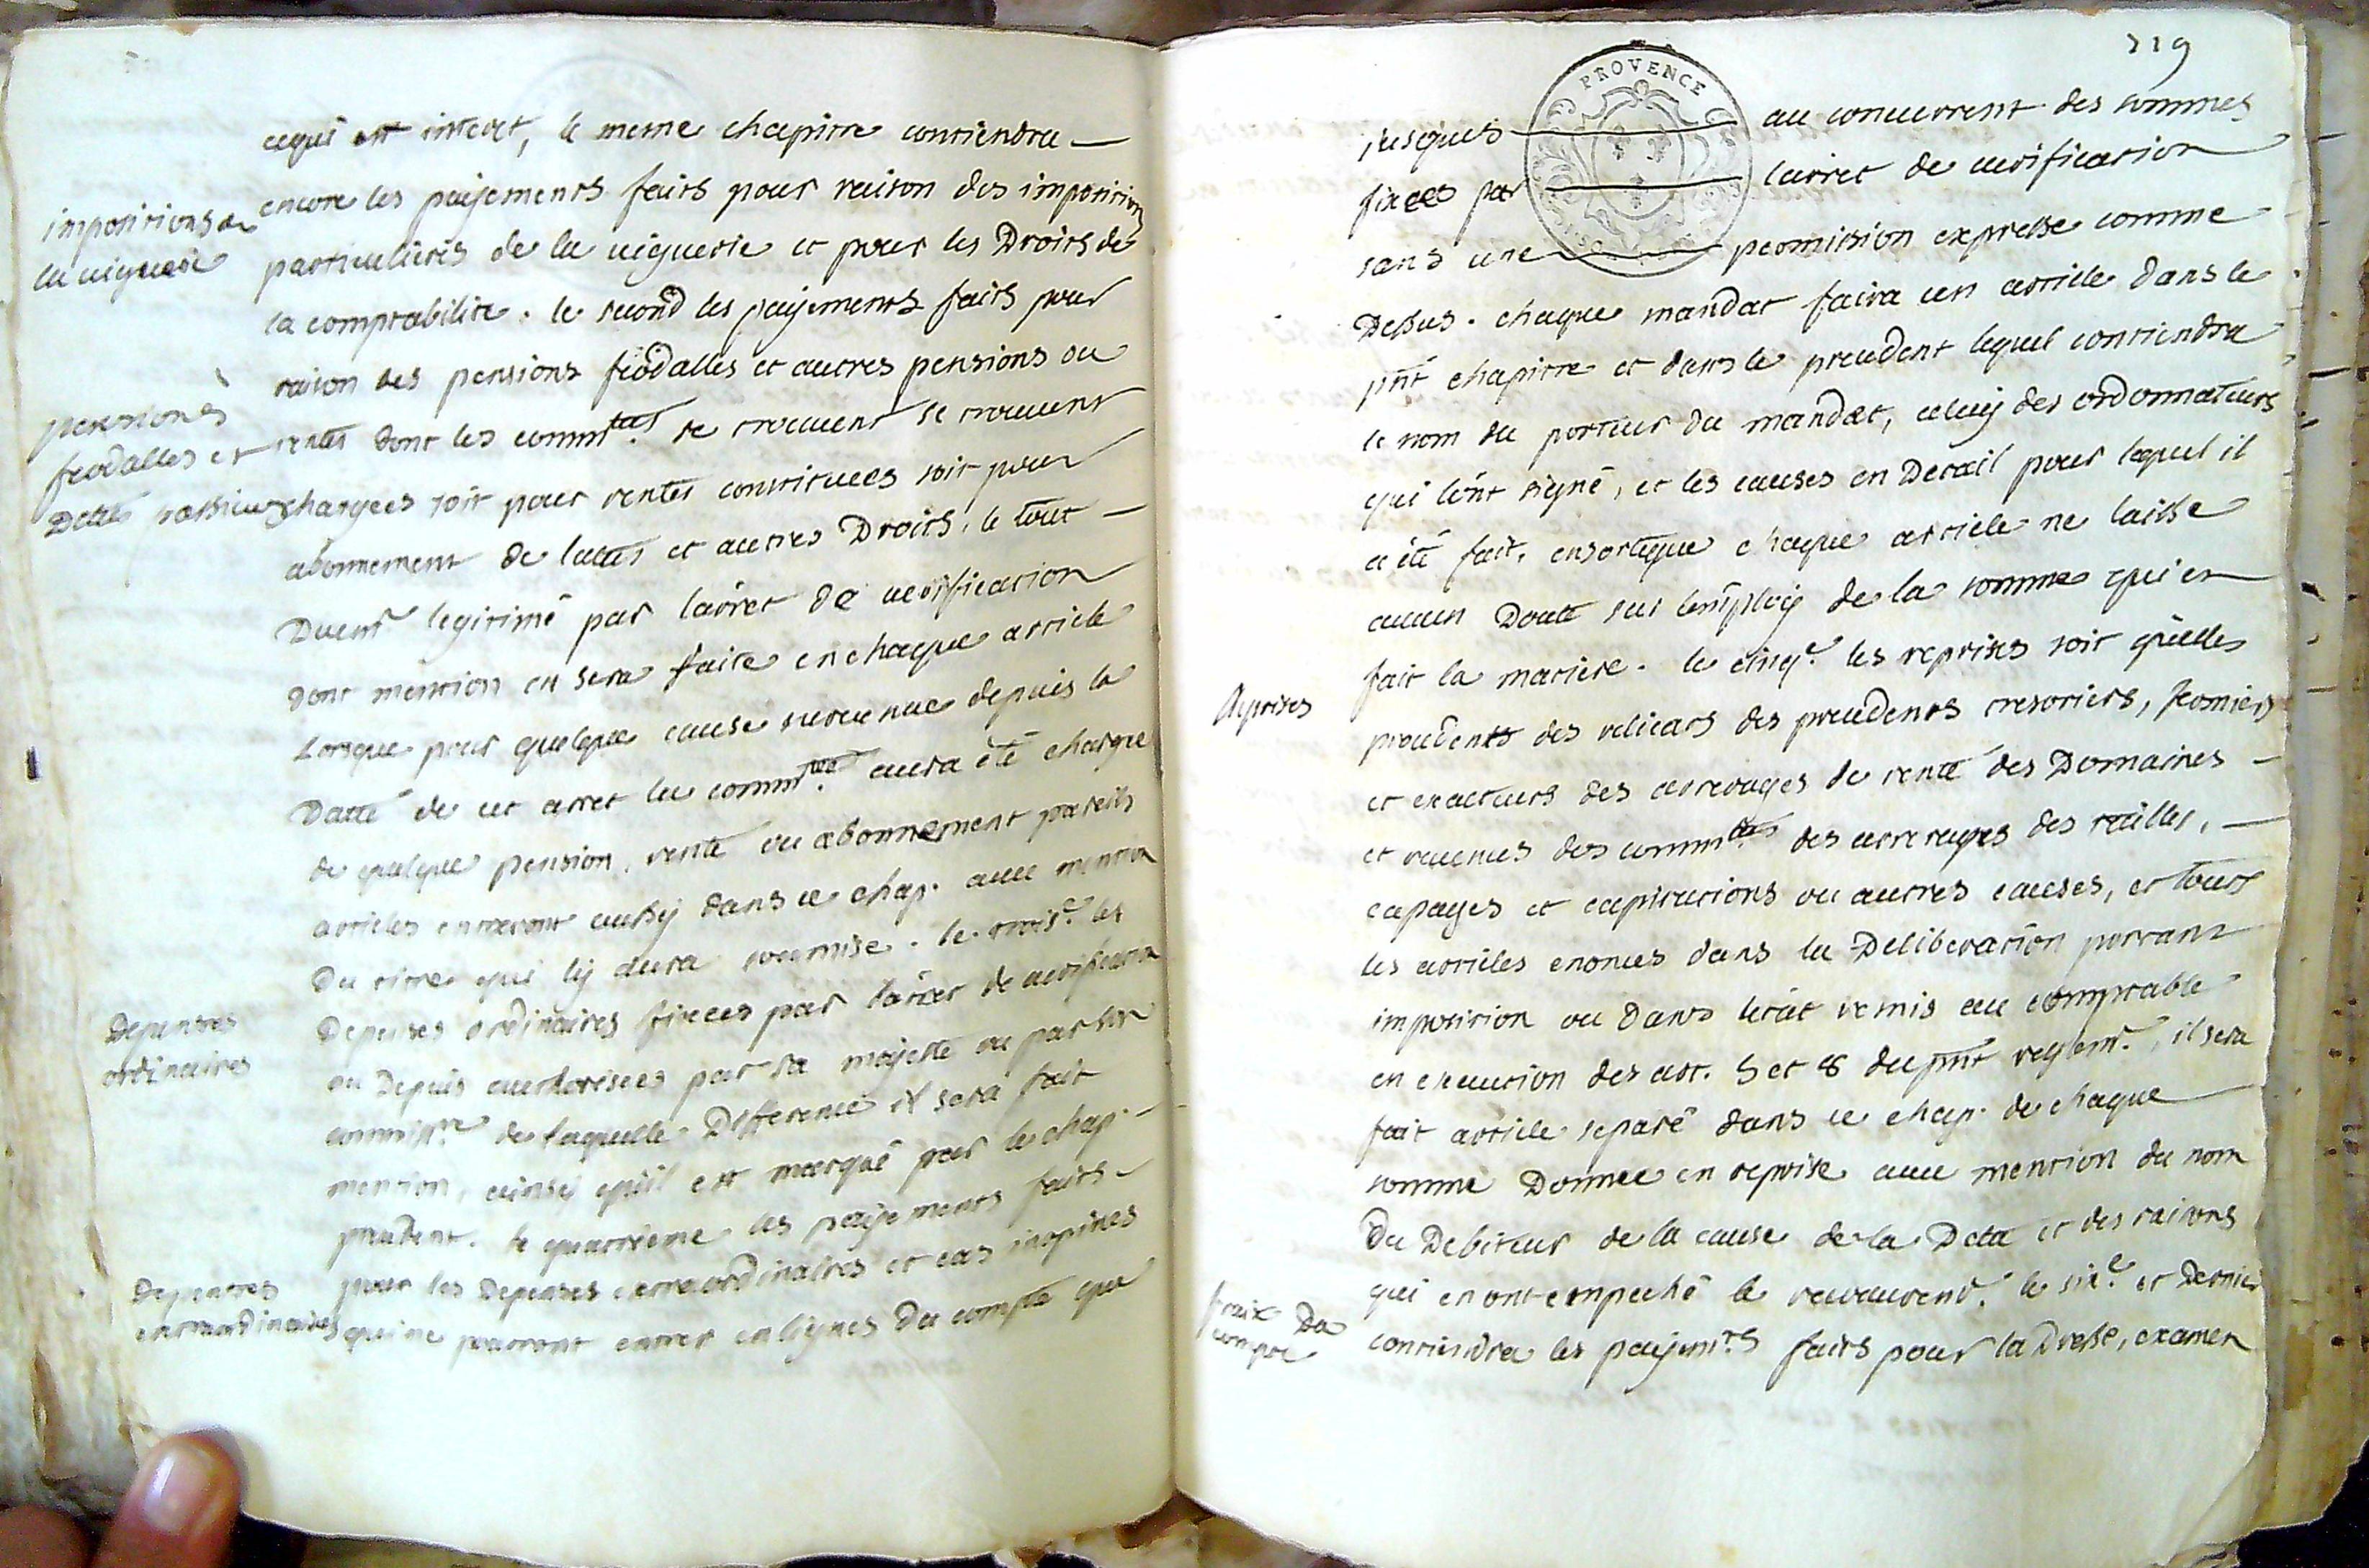 cequi est interet, le meme chapitre contiendra
impositions de
la viguerie
encore les paijements faits pour raison des impositions
particulieres de la viguerie et pour les Droits de
la comptabilite. le second les paijements faits pour
raison des pensions feodalles et autres pensions ou
pensions
feodalles et
Dettes passives
rentes dont les commtés se trouvent se trouvent
chargees soit pour rentes constituees soit pour
abonnement de lattes et autres Droits, le tout
Duemt legitimé par larret de verification
dont mention en sera faite en chaque article
Lorsque pour quelque cause survenue depuis la
Datte de cet arret la commté aura été chargée
de quelque pension, rente ou abonnement pareils
articles entreront aussy dans ce chap. avec mention
Du titre qui ly aura soumise. le trois.e les
Depenses
ordinaires
Depenses ordinaires fixees par larret de verification
ou Depuis authorisees par sa majesté ou par les
commiss.re de laquelle Difference il sera fait
mention, ainsy quil est marqué par le chap.
precedent. le quatrieme les paijements faits
Depenses
extraordinaires
pour les Depenses extraordinaires et cas inopines
qui ne pourront entrer en lignes de compte que
119
PROVENCE
jusques au concurrent des sommes
fixees par larret de verification
sans une permission expresse comme
Dessus. chaque mandat faira un article dans le
pnt chapitre et dans le precedent lequel contiendra
le nom du porteur du mandat, celuy des ordonnateurs
qui lont signé, et les causes en Detail pour lequel il
a été fait, ensorteque chaque article ne laisse
aucun Doute sur lemploy de la somme qui en
fait la matiere. le cinq.e les reprises soit quelles
Reprises
procedent des relicats des precedents tresoriers, fermiers
et exacteurs des arrerages de rente des Domaines
et revenus des commtés des arrerages des tailles,
capages et capitations ou autres causes, et tous
les articles enonces dans la Deliberation portant
imposition ou dans letat remis au comptable
en execution des art. 5 et 8 du pnt reglemt, il sera
fait article separé dans ce chap. de chaque
somme Donnee en reprise avec mention du nom
Du Debiteur de la cause de la Dette et des raisons
qui en ont empeché le recouvremt. le six.e et Dernier
fraix Du
compte
contiendra les paijemts faits pour la Dresse, examen